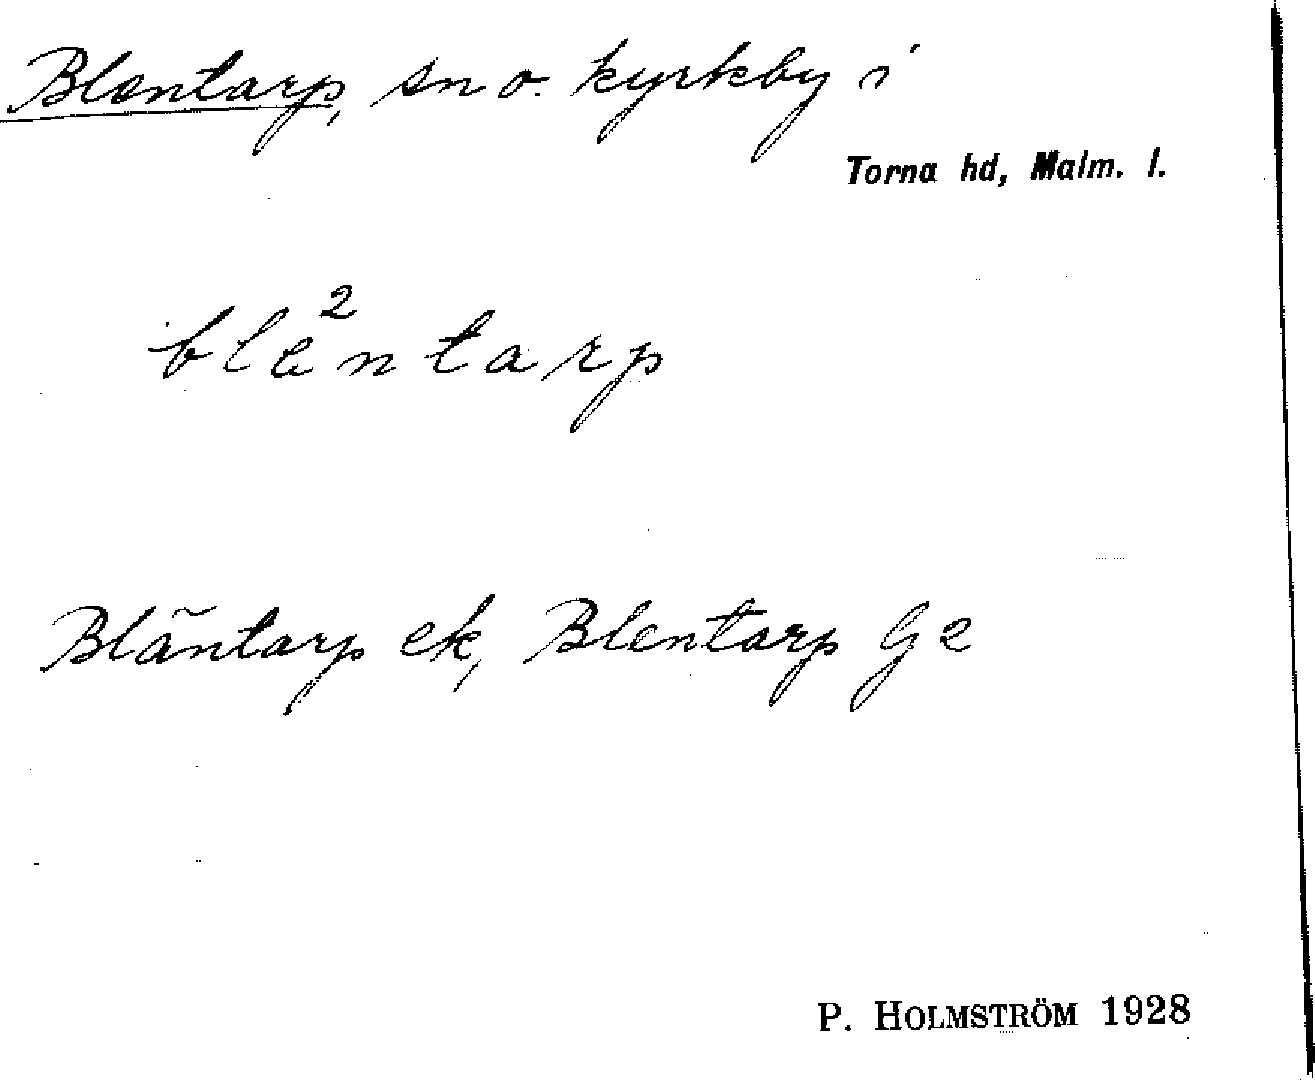 Blentarp, sn o. kyrkby i
Torna hd, Malm. l.
ble²ntarp
Bläntarp ek, Blentarp G2
P. HOLMSTRÖM 1928